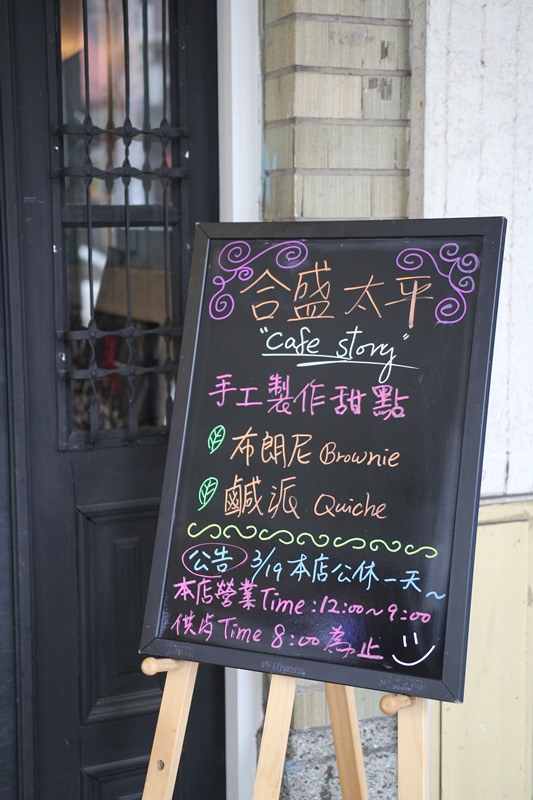 合盛太平
"Cafe story"
手工製作甜點
布朗尼 Brownie
鹹派 Quiche
公告 3/19 本店公休一天~
本店營業Time:12:00~9:00
供点Time 8:00為止